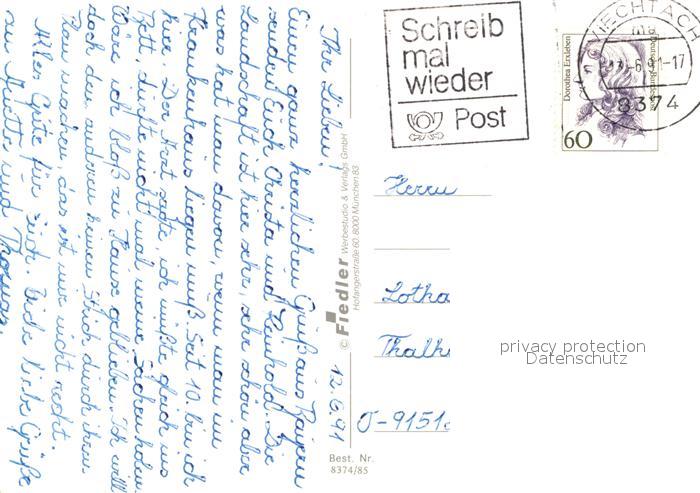 Ihr Lieben! 12.6.91
Einen ganz herzlichen Gruß aus Bayern
senden Euch Christa und Reinhold. Die
Landschaft ist hier sehr, sehr schön aber
was hat man davon, wenn man im
Krankenhaus liegen muß. Seit 10. bin ich
hier. Der Arzt sagte, ich müßte gleich ins
Bett, dürfte nicht mal meine Sachen holen.
Wäre ich bloß zu Hause geblieben. Ich will
doch den anderen keinen Strich durch ihren
Plan machen, das ist mir nicht recht.
Alles Gute für Euch. Viele liebe Grüße
an Mutter und Thomas
© Fiedler Werbestudio & Verlags GmbH
Hofangerstraße 60, 8000 München 83
Best. Nr.
8374/85
Schreib
mal
wieder
Post
VIECHTACH
-6.91-17
8374
Dorothea Erxleben
Deutsche Bundespost
60
Herrn
Lotha
Thalh
O-9151
privacy protection
Datenschutz